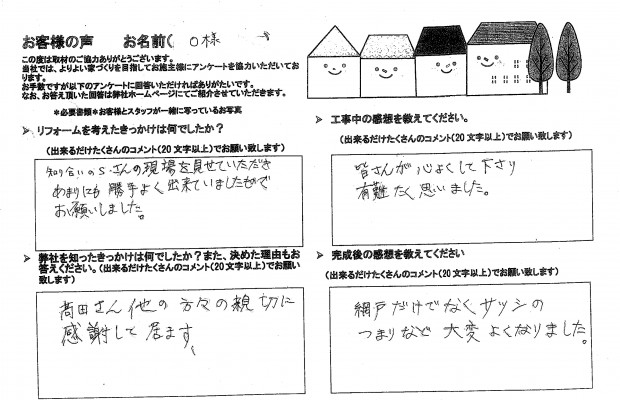 お客様の声　お名前（　O様
この度は取材のご協力ありがとうございます。
当社では、よりよい家づくりを目指してお施主様にアンケートを協力いただいてお
ります。
お手数ですが以下のアンケートに回答いただければありがたいです。
なお、お答え頂いた回答は弊社ホームページにてご紹介させていただきます。
＊必要書類＊お客様とスタッフが一緒に写っているお写真
➢ リフォームを考えたきっかけは何でしたか？
（出来るだけたくさんのコメント（20文字以上）でお願い致します）
知り合いのS・さんの現場を見せていただき
あまりにも勝手よく出来ていましたので
お願いしました。
➢ 弊社を知ったきっかけは何でしたか？また、決めた理由もお
答えください。（出来るだけたくさんのコメント（20文字以上）でお願い
致します）
高田さん他の方々の親切に
感謝して居ます、
➢ 工事中の感想を教えてください。
（出来るだけたくさんのコメント（20文字以上）でお願い致します）
皆さんが心よくして下さり
有難たく思いました。
➢ 完成後の感想を教えてください
（出来るだけたくさんのコメント（20文字以上）でお願い致します）
網戸だけでなくサッシの
つまりなど大変よくなりました。